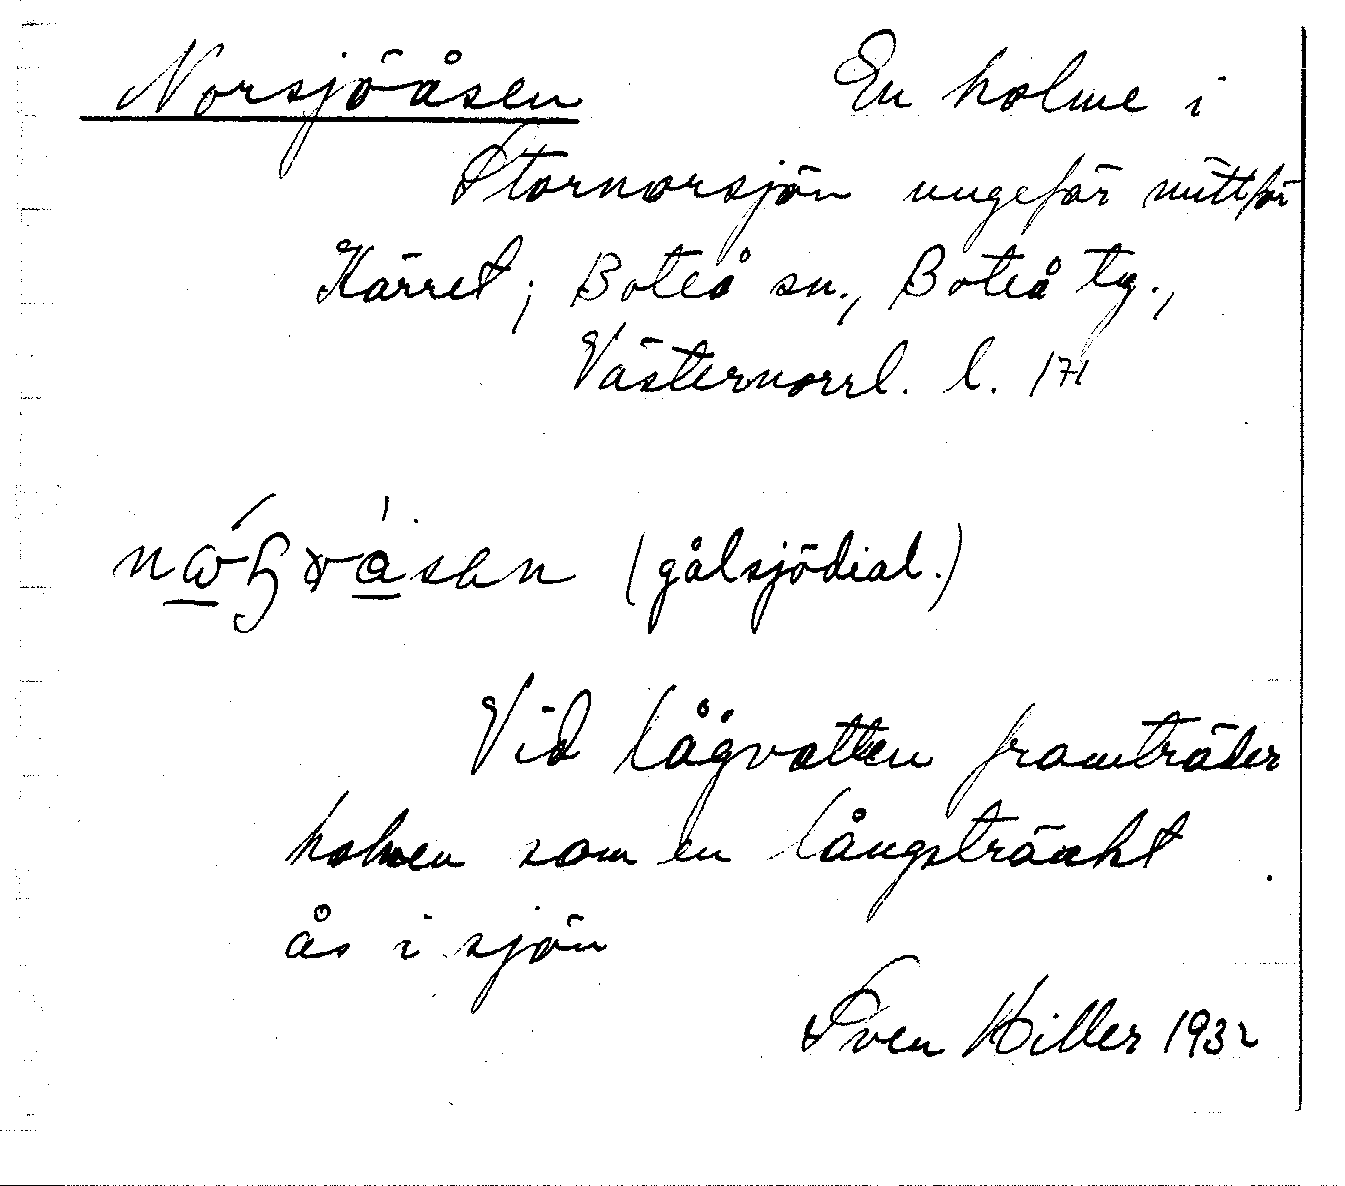 Norsjöåsen En holme i
Stornorsjön ungefär mittför
Kärret; Boteå sn., Boteå tg.,
Västernorrl. l. 171
(gålsjödial.)
Vid lågvatten framträder
holmen som en långsträckt
ås i sjön
Sven Hiller 1932